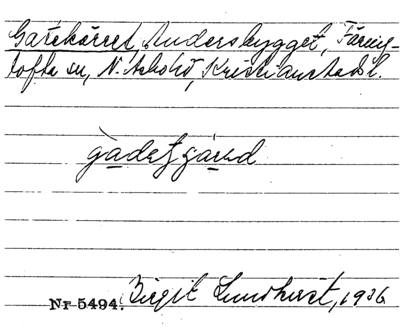 Gatekärret, Andersbygget, Färing-
tofta sn, N. Åsbo hd, Kristianstads l.
Nr 5494. Birgit Lundkvist, 1936